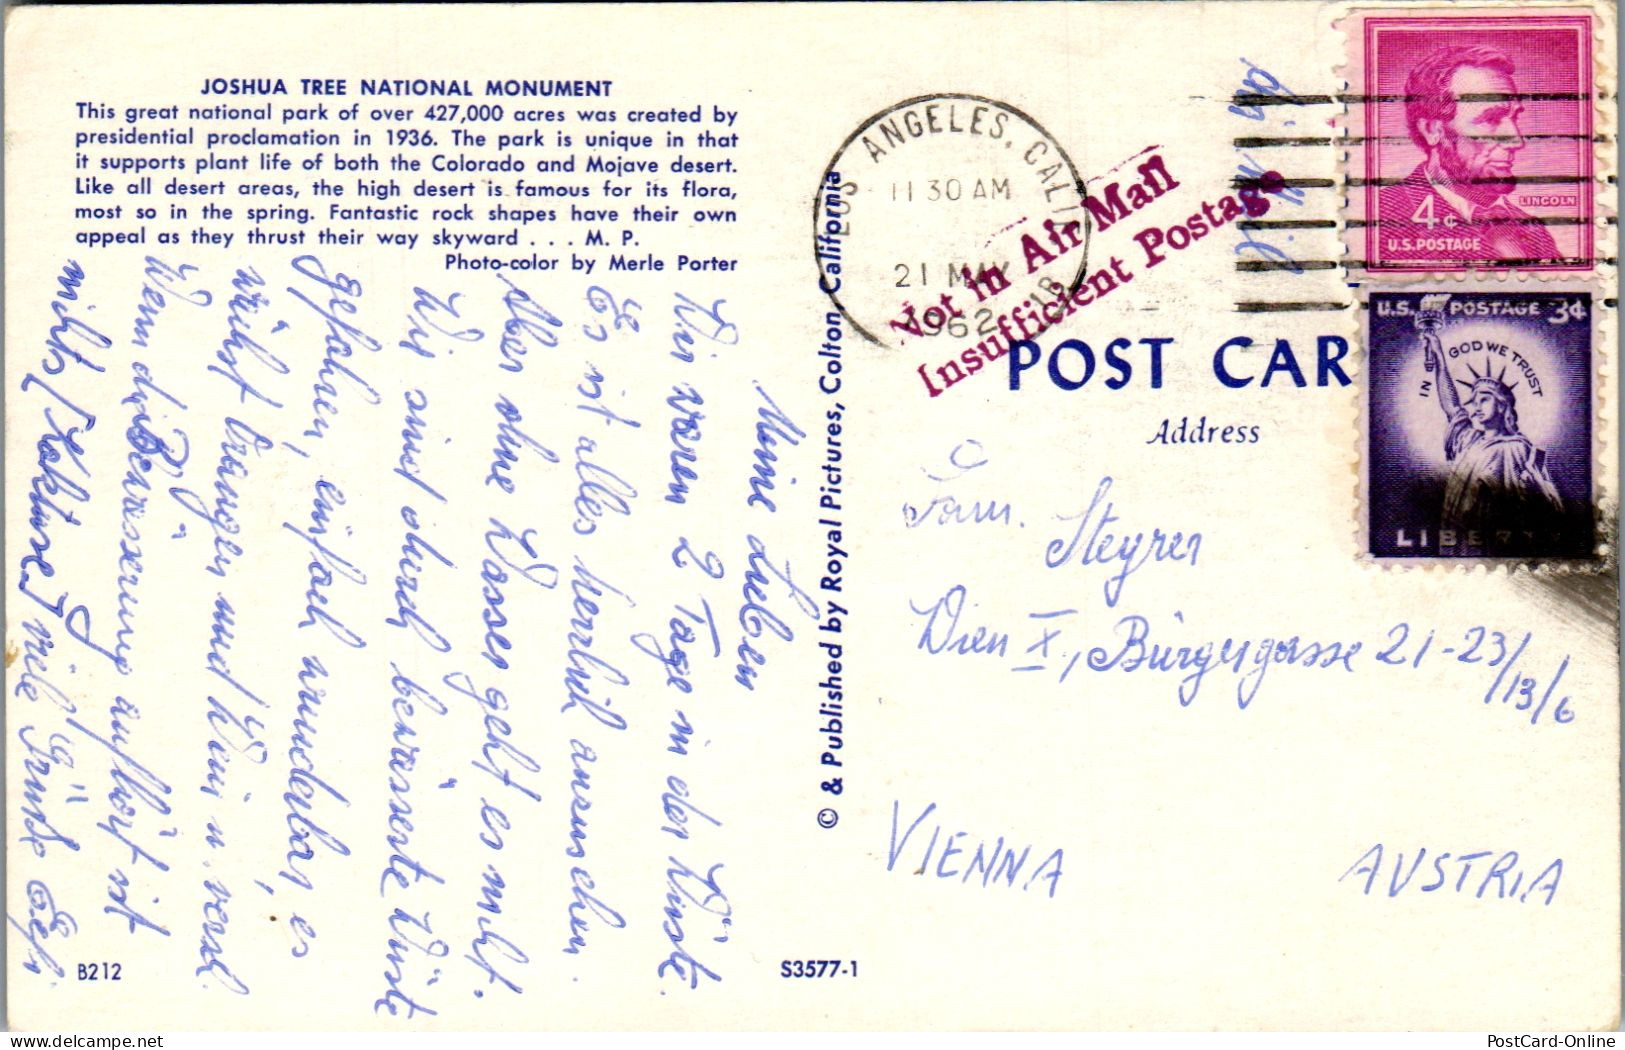 JOSHUA TREE NATIONAL MONUMENT
This great national park of over 427,000 acres was created by
presidential proclamation in 1936. The park is unique in that
it supports plant life of both the Colorado and Mojave desert.
Like all desert areas, the high desert is famous for its flora,
most so in the spring. Fantastic rock shapes have their own
appeal as they thrust their way skyward . . . M. P.
Photo-color by Merle Porter
Meine Lieben
Wir waren 2 Tage in der Wüste.
Es ist alles herrlich anzusehen.
Aber ohne Wasser geht es nicht.
Wir sind durch bewässerte Wüste
gefahren, einfach wunderbar, es
wächst Orangen und Wein u. versch.
Wenn die Bewässerung aufhört ist
nichts [Kakteen] viele Grüße
B212
S3577-1
© & Published by Royal Pictures, Colton, California
LOS ANGELES, CALIF.
11 30 AM
21 MAY
1962
Not in Air Mail
Insufficient Postage
Air Mail
4¢
LINCOLN
U.S. POSTAGE
U.S. POSTAGE 3¢
IN GOD WE TRUST
LIBERTY
POST CAR
Address
Fam.
Steyrer
Wien X, Bürgergasse 21-23/13/6
VIENNA AUSTRIA
PostCard-Online